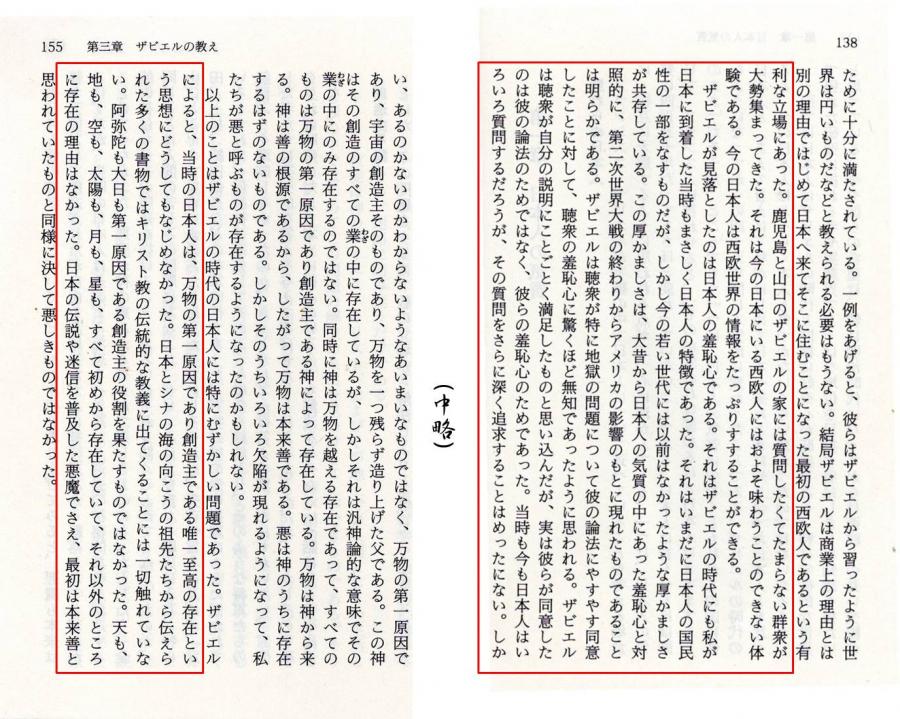 138
ために十分に満たされている。一例をあげると、彼らはザビエルから習ったように世
界は円いものだなどと教えられる必要はもうない。結局ザビエルは商業上の理由とは
別の理由ではじめて日本へ来てそこに住むことになった最初の西欧人であるという有
利な立場にあった。鹿児島と山口のザビエルの家には質問したくてたまらない群衆が
大勢集まってきた。それは今の日本にいる西欧人にはおよそ味わうことのできない体
験である。今の日本人は西欧世界の情報をたっぷりすすることができる。
ザビエルが見落としたのは日本人の羞恥心である。それはザビエルの時代にも私が
日本に到着した当時もまさしく日本人の特徴であった。それはいまだに日本人の国民
性の一部をなすものだが、しかし今の若い世代には以前はなかったような厚かましさ
が共存している。この厚かましさは、大昔から日本人の気質の中にあった羞恥心と対
照的に、第二次世界大戦の終わりからアメリカの影響のもとに現れたものであること
は明らかである。ザビエルは聴衆が特に地獄の問題について彼の論法にやすやす同意
したことに対して、聴衆の羞恥心に驚くほど無知であったように思われる。ザビエル
は聴衆が自分の説明にことごとく満足したものと思い込んだが、実は彼らが同意した
のは彼の論法のためではなく、彼らの羞恥心のためであった。当時も今も日本人はい
ろいろ質問するだろうが、その質問をさらに深く追求することはめったにない。しか
(中略)
155 第三章 ザビエルの教え
い、あるのかないのかわからないようなあいまいなものではなく、万物の第一原因で
あり、宇宙の創造主そのものであり、万物を一つ残らず造り上げた父である。この神
はその創造のすべての業の中に存在しているが、しかしそれは汎神論的な意味でその
業の中にのみ存在するのではない。同時に神は万物を越える存在であって、すべての
ものは万物の第一原因であり創造主である神によって存在している。万物は神から来
る。神は善の根源であるから、したがって万物は本来善である。悪は神のうちに存在
するはずのないものである。しかしそのうちいろいろ欠陥が現れるようになって、私
たちが悪と呼ぶものが存在するようになったのかもしれない。
以上のことはザビエルの時代の日本人には特にむずかしい問題であった。ザビエル
によると、当時の日本人は、万物の第一原因であり創造主である唯一至高の存在とい
う思想にどうしてもなじめなかった。日本とシナの海の向こうの祖先たちから伝えら
れた多くの書物ではキリスト教の伝統的な教義に出てくることには一切触れていな
い。阿弥陀も大日も第一原因である創造主の役割を果たすものではなかった。天も、
地も、空も、太陽も、月も、星も、すべて初めから存在していて、それ以外のところ
に存在の理由はなかった。日本の伝説や迷信を普及した悪魔でさえ、最初は本来善と
思われていたものと同様に決して悪しきものではなかった。